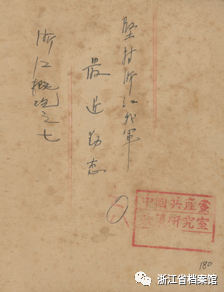 坚持浙江我军
最近动态
浙江概况之七
中國共産黨
研究室
180
浙江省档案馆